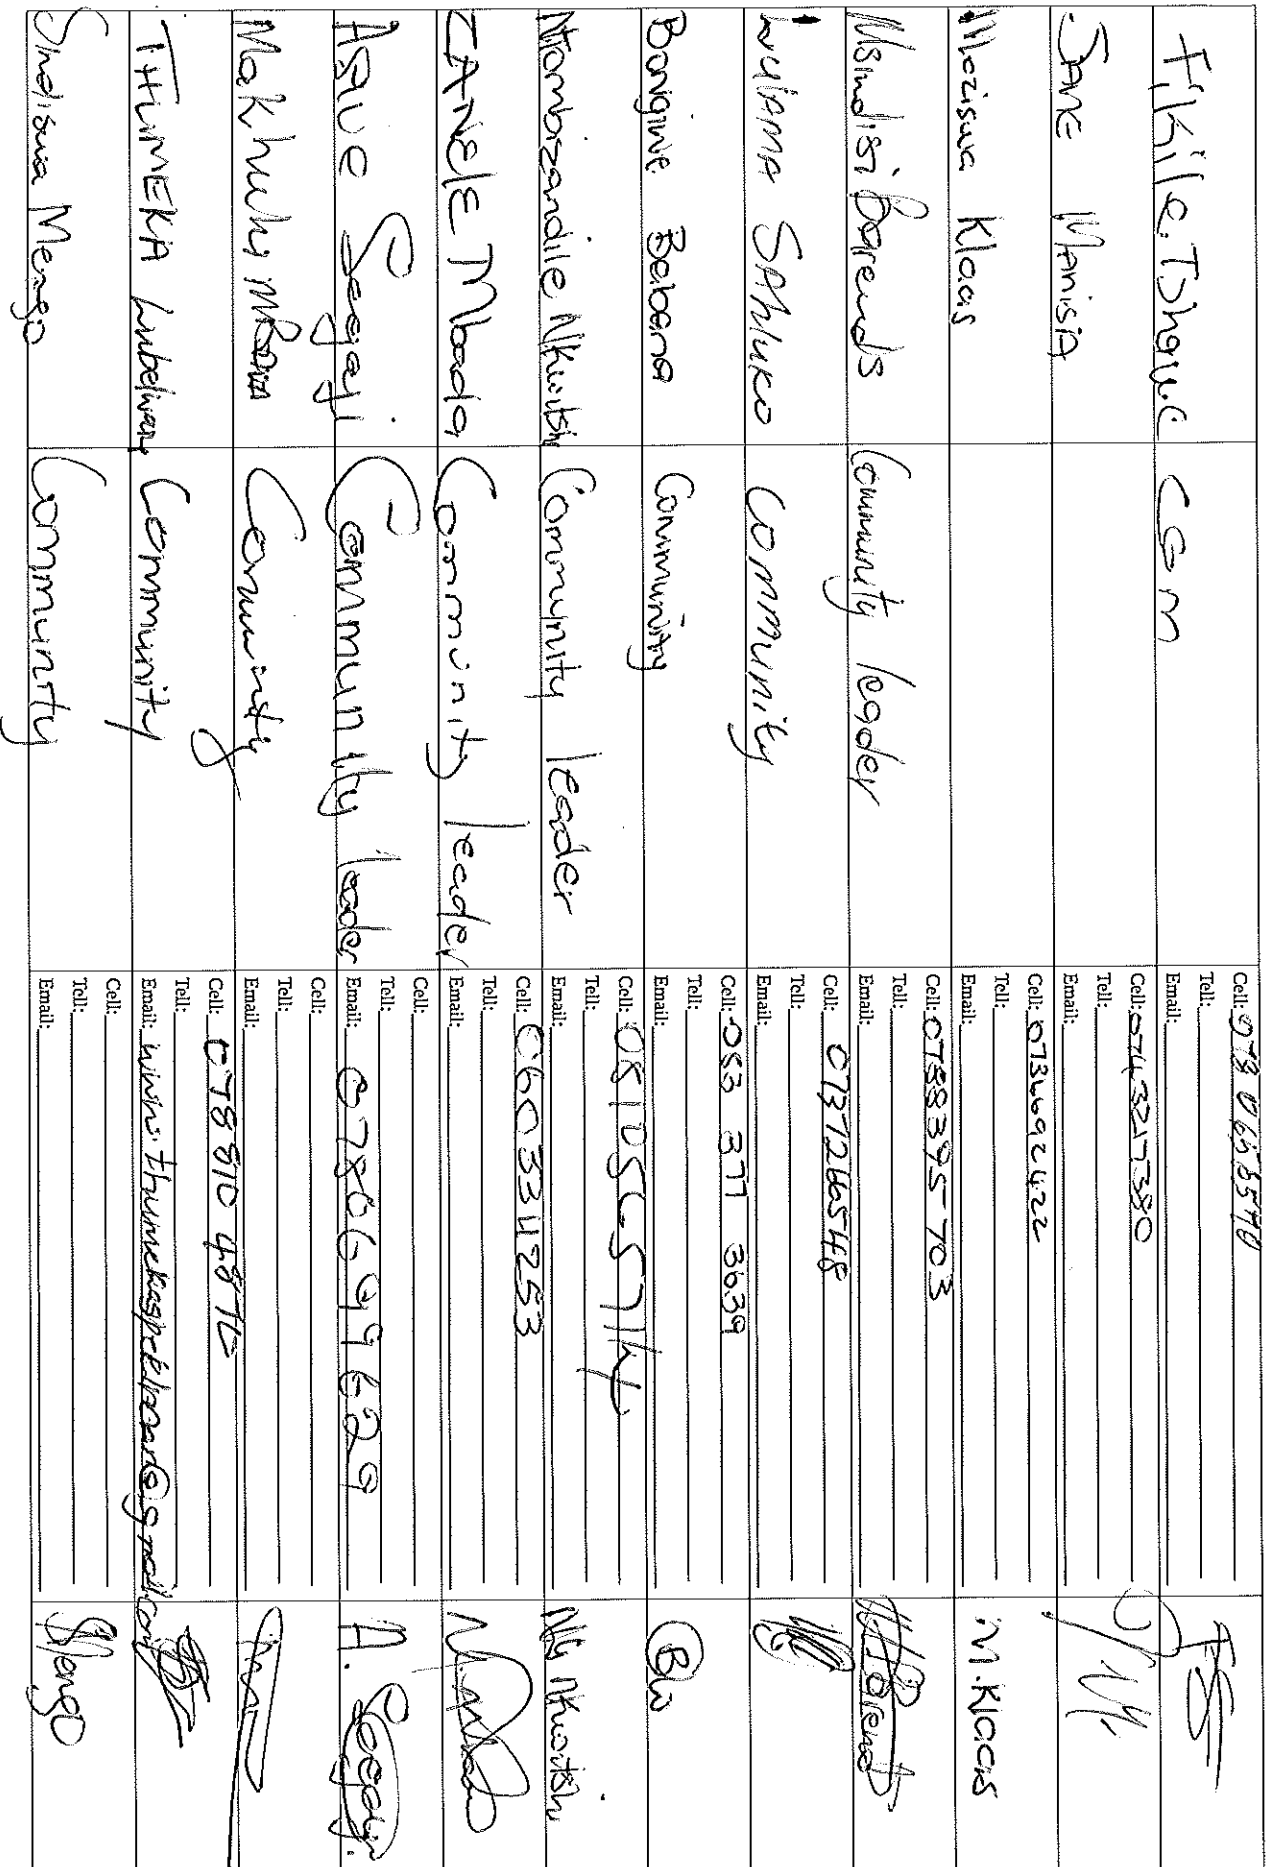 Fikile. Tshaule
com
Cell: 073 0665540
Tell:
Email:
JANE Manisia
Cell: 0743217380
Tell:
Email:
Moziswa Klaas
Cell: 0736692422
Tell:
Email:
M. Klaas
Msindisi Barends
Community leader
Cell: 0788395703
Tell:
Email:
LulAMA SAHLUKO
COMMUNITY
Cell: 0737266548
Tell:
Email:
Bongiwe Babana
Community
Cell: 083 377 3639
Tell:
Email:
Ntombizandile Nkwitshi
Community leader
Cell:
Tell:
Email:
Nkwitshi
ZANELE Mbada
Community leader
Cell: 0603341253
Tell:
Email:
ASIVE Seegaji
Community leader
Cell:
Tell:
Email: 0780699629
A. Seegaji.
Makhuchu
Community
Cell:
Tell:
Email:
THUMEKA
Community
Cell: 078810 4876
Tell:
Email:
Sindiswa Mengo
Community
Cell:
Tell:
Email:
SMengo